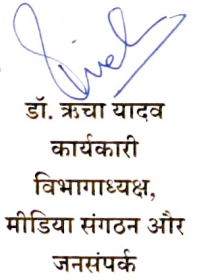 डॉ. ऋचा यादव
कार्यकारी
विभागाध्यक्ष,
मीडिया संगठन और
जनसंपर्क